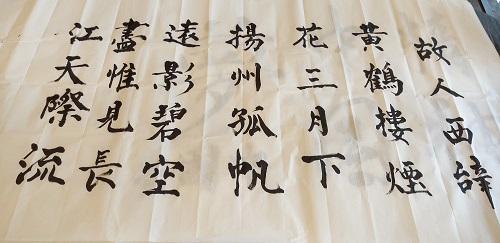 故人西辭
黃鶴樓煙
花三月下
揚州孤帆
遠影碧空
盡惟見長
江天際流